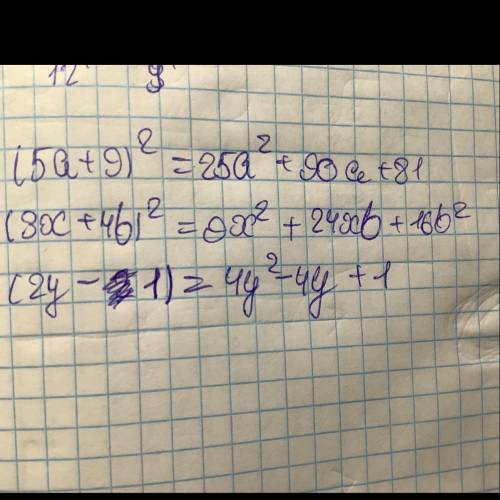 12 9
(5a+9)² = 25a² + 90a + 81
(3x + 4b)² = 9x² + 24xb + 16b²
(2y - 1) = 4y² - 4y + 1